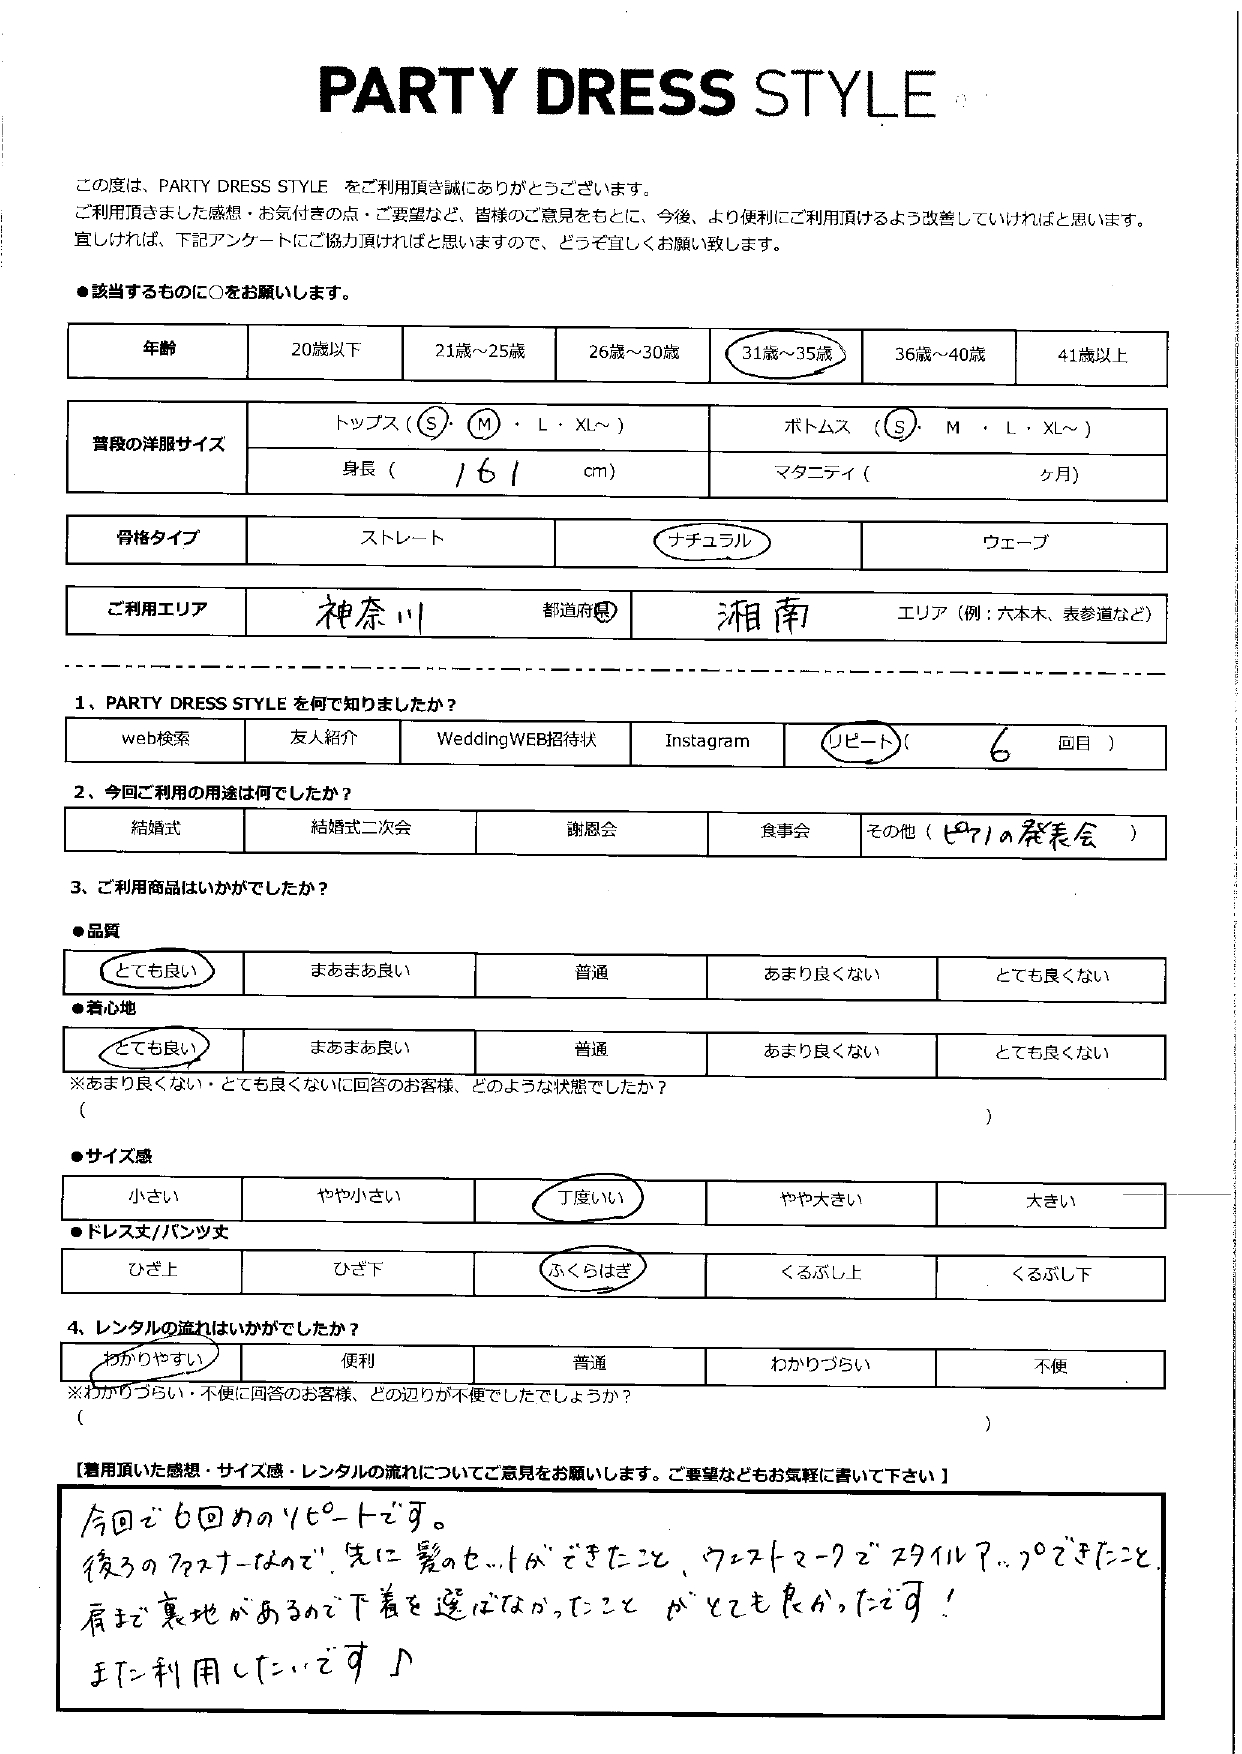 PARTY DRESS STYLE
この度は、PARTY DRESS STYLE をご利用頂き誠にありがとうございます。
ご利用頂きました感想・お気付きの点・ご要望など、皆様のご意見をもとに、今後、より便利にご利用頂けるよう改善していければと思います。
宜しければ、下記アンケートにご協力頂ければと思いますので、どうぞ宜しくお願い致します。
●該当するものに○をお願いします。
年齢 20歳以下 21歳～25歳 26歳～30歳 31歳～35歳 36歳～40歳 41歳以上
普段の洋服サイズ トップス ( S ・ M ・ L ・ XL～ ) ボトムス ( S ・ M ・ L ・ XL～ )
身長 ( 161 cm) マタニティ ( ヶ月)
骨格タイプ ストレート ナチュラル ウェーブ
ご利用エリア 神奈川 都道府県 湘南 エリア（例：六本木、表参道など）
1、PARTY DRESS STYLE を何で知りましたか？
web検索 友人紹介 WeddingWEB招待状 Instagram リピート ( 6 回目 )
2、今回ご利用の用途は何でしたか？
結婚式 結婚式二次会 謝恩会 食事会 その他 ( ピアノの発表会 )
3、ご利用商品はいかがでしたか？
●品質
とても良い まあまあ良い 普通 あまり良くない とても良くない
●着心地
とても良い まあまあ良い 普通 あまり良くない とても良くない
※あまり良くない・とても良くないに回答のお客様、どのような状態でしたか？
( )
●サイズ感
小さい やや小さい 丁度いい やや大きい 大きい
●ドレス丈/パンツ丈
ひざ上 ひざ下 ふくらはぎ くるぶし上 くるぶし下
4、レンタルの流れはいかがでしたか？
わかりやすい 便利 普通 わかりづらい 不便
※わかりづらい・不便に回答のお客様、どの辺りが不便でしたでしょうか？
( )
【着用頂いた感想・サイズ感・レンタルの流れについてご意見をお願いします。ご要望などもお気軽に書いて下さい 】
今回で6回めのリピートです。
後ろのファスナーなので、先に髪のセットができたこと、ウェストマークでスタイルアップできたこと、
肩まで裏地があるので下着を選ばなかったことがとても良かったです！
また利用したいです♪